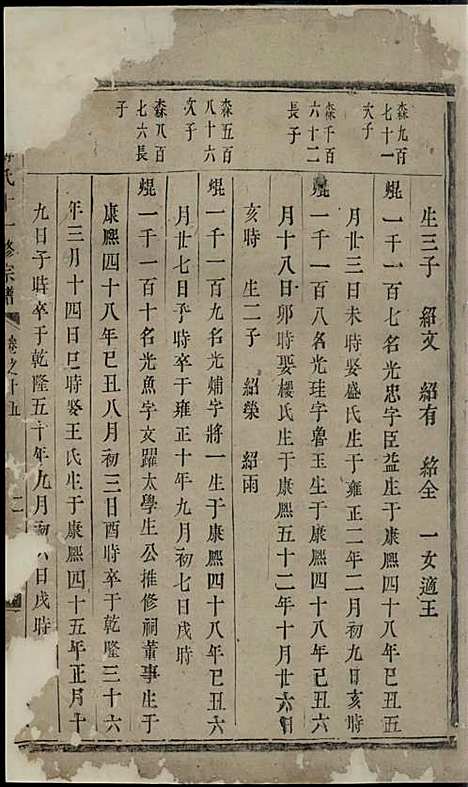 生三子 紹文 紹有 紹全 一女適王
森九百七十一次子
焜一千一百七名光忠字臣益生于康熙四十八年巳丑五
月廿三日未時娶盛氏生于雍正二年二月初九日亥時
森千百六十二長子
焜一千一百八名光珪字魯玉生于康熙四十八年巳丑六
月十八日卯時娶樓氏生于康熙五十二年十月廿六日
亥時 生二子 紹榮 紹雨
森五百八十六次子
焜一千一百九名光熵字將一生于康熙四十八年巳丑六
月廿七日子時卒于雍正十年九月初七日戌時
森八百七六長子
焜一千一百十名光魚字文躍太學生公推修祠董事生于
康熙四十八年巳丑八月初三日酉時卒于乾隆三十六
年三月十四日巳時娶王氏生于康熙四十五年正月十
九日子時卒于乾隆五十年九月初六日戌時
氏十一修宗譜 卷之十五 二